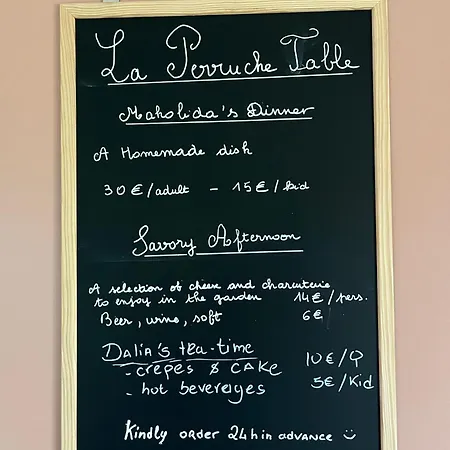 La Perruche Table
Maholida's Dinner
A Homemade dish
30€/adult - 15€/kid
Savory Afternoon
A selection of cheese and charcuterie
to enjoy in the garden 14€/pers.
Beer, wine, soft 6€
Dalia's tea-time
- crêpes & CAKE 10€/
- hot beverages 5€/Kid
Kindly order 24h in advance :)